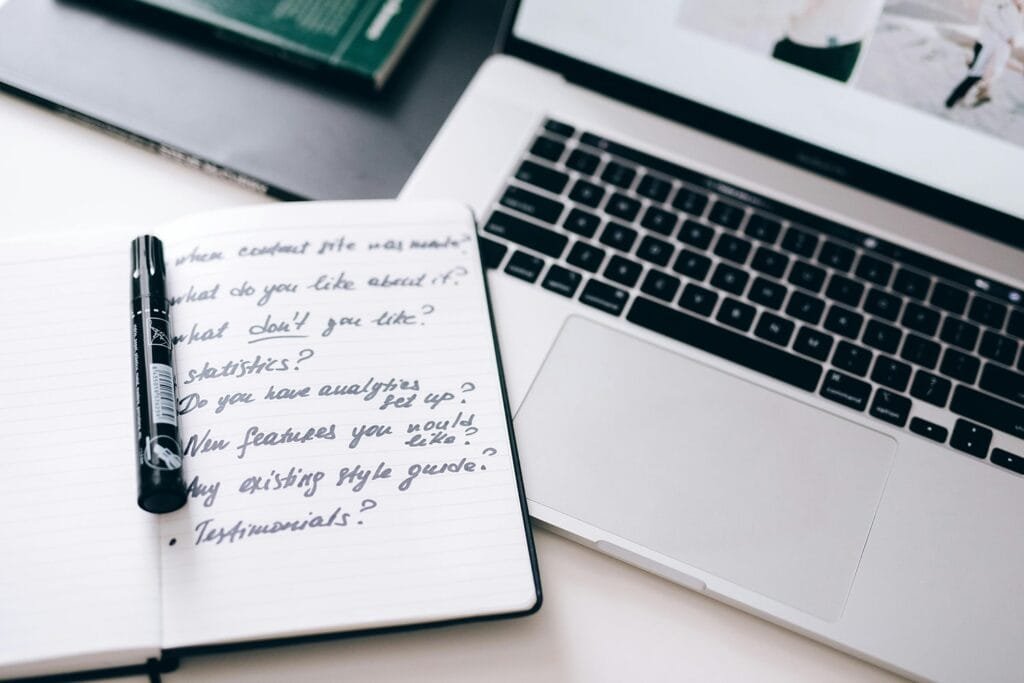 when content site was made?
what do you like about it?
what don't you like?
statistics?
Do you have analytics
set up?
New features you would
like?
Any existing style guide?
. Testimonials?
command
option
command